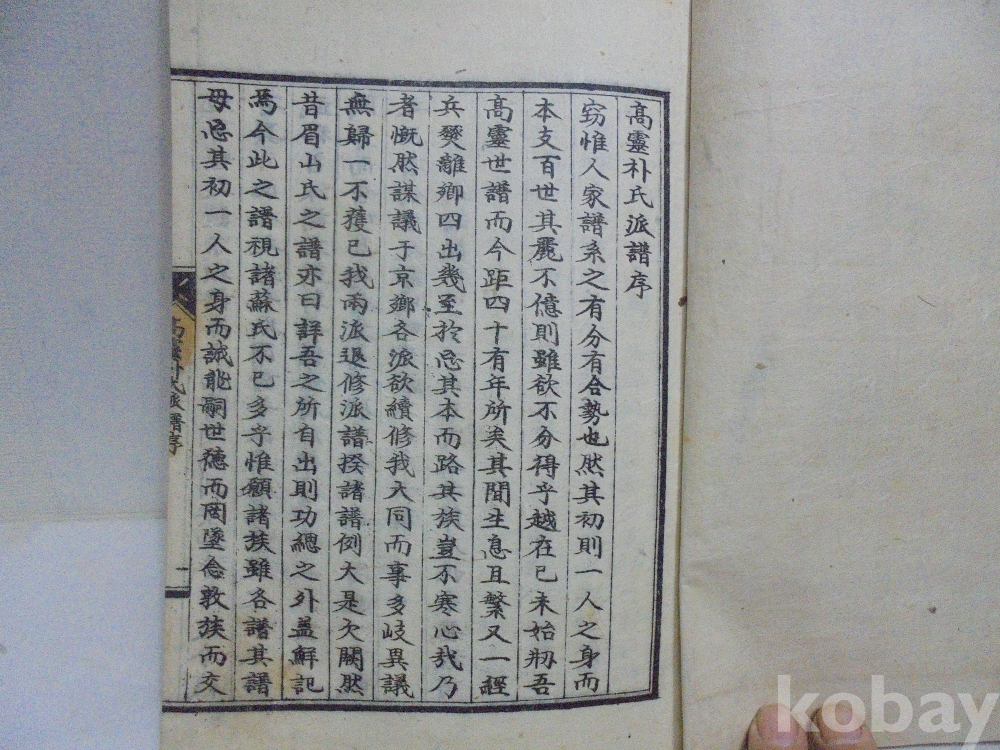 高靈朴氏派譜序
窃惟人家譜系之有分有合勢也然其初則一人之身而
本支百世其麗不億則雖欲不分得乎越在已未始刱吾
高靈世譜而今距四十有年所矣其間生息且繁又一經
兵燹離鄉四出幾至於忘其本而路其族豈不寒心哉乃
者慨然謀議于京鄉各派欲續修我大同而事多岐異議
無歸一不獲已我兩派退修派譜揆諸譜例大是欠闕然
昔眉山氏之譜亦曰詳吾之所自出則功緦之外盖鮮記
焉今此之譜視諸蘇氏不已多乎惟願諸族雖各譜其譜
毋忘其初一人之身而誠能嗣世德而罔墜念敦族而交
高靈朴氏派譜序
一
kobay